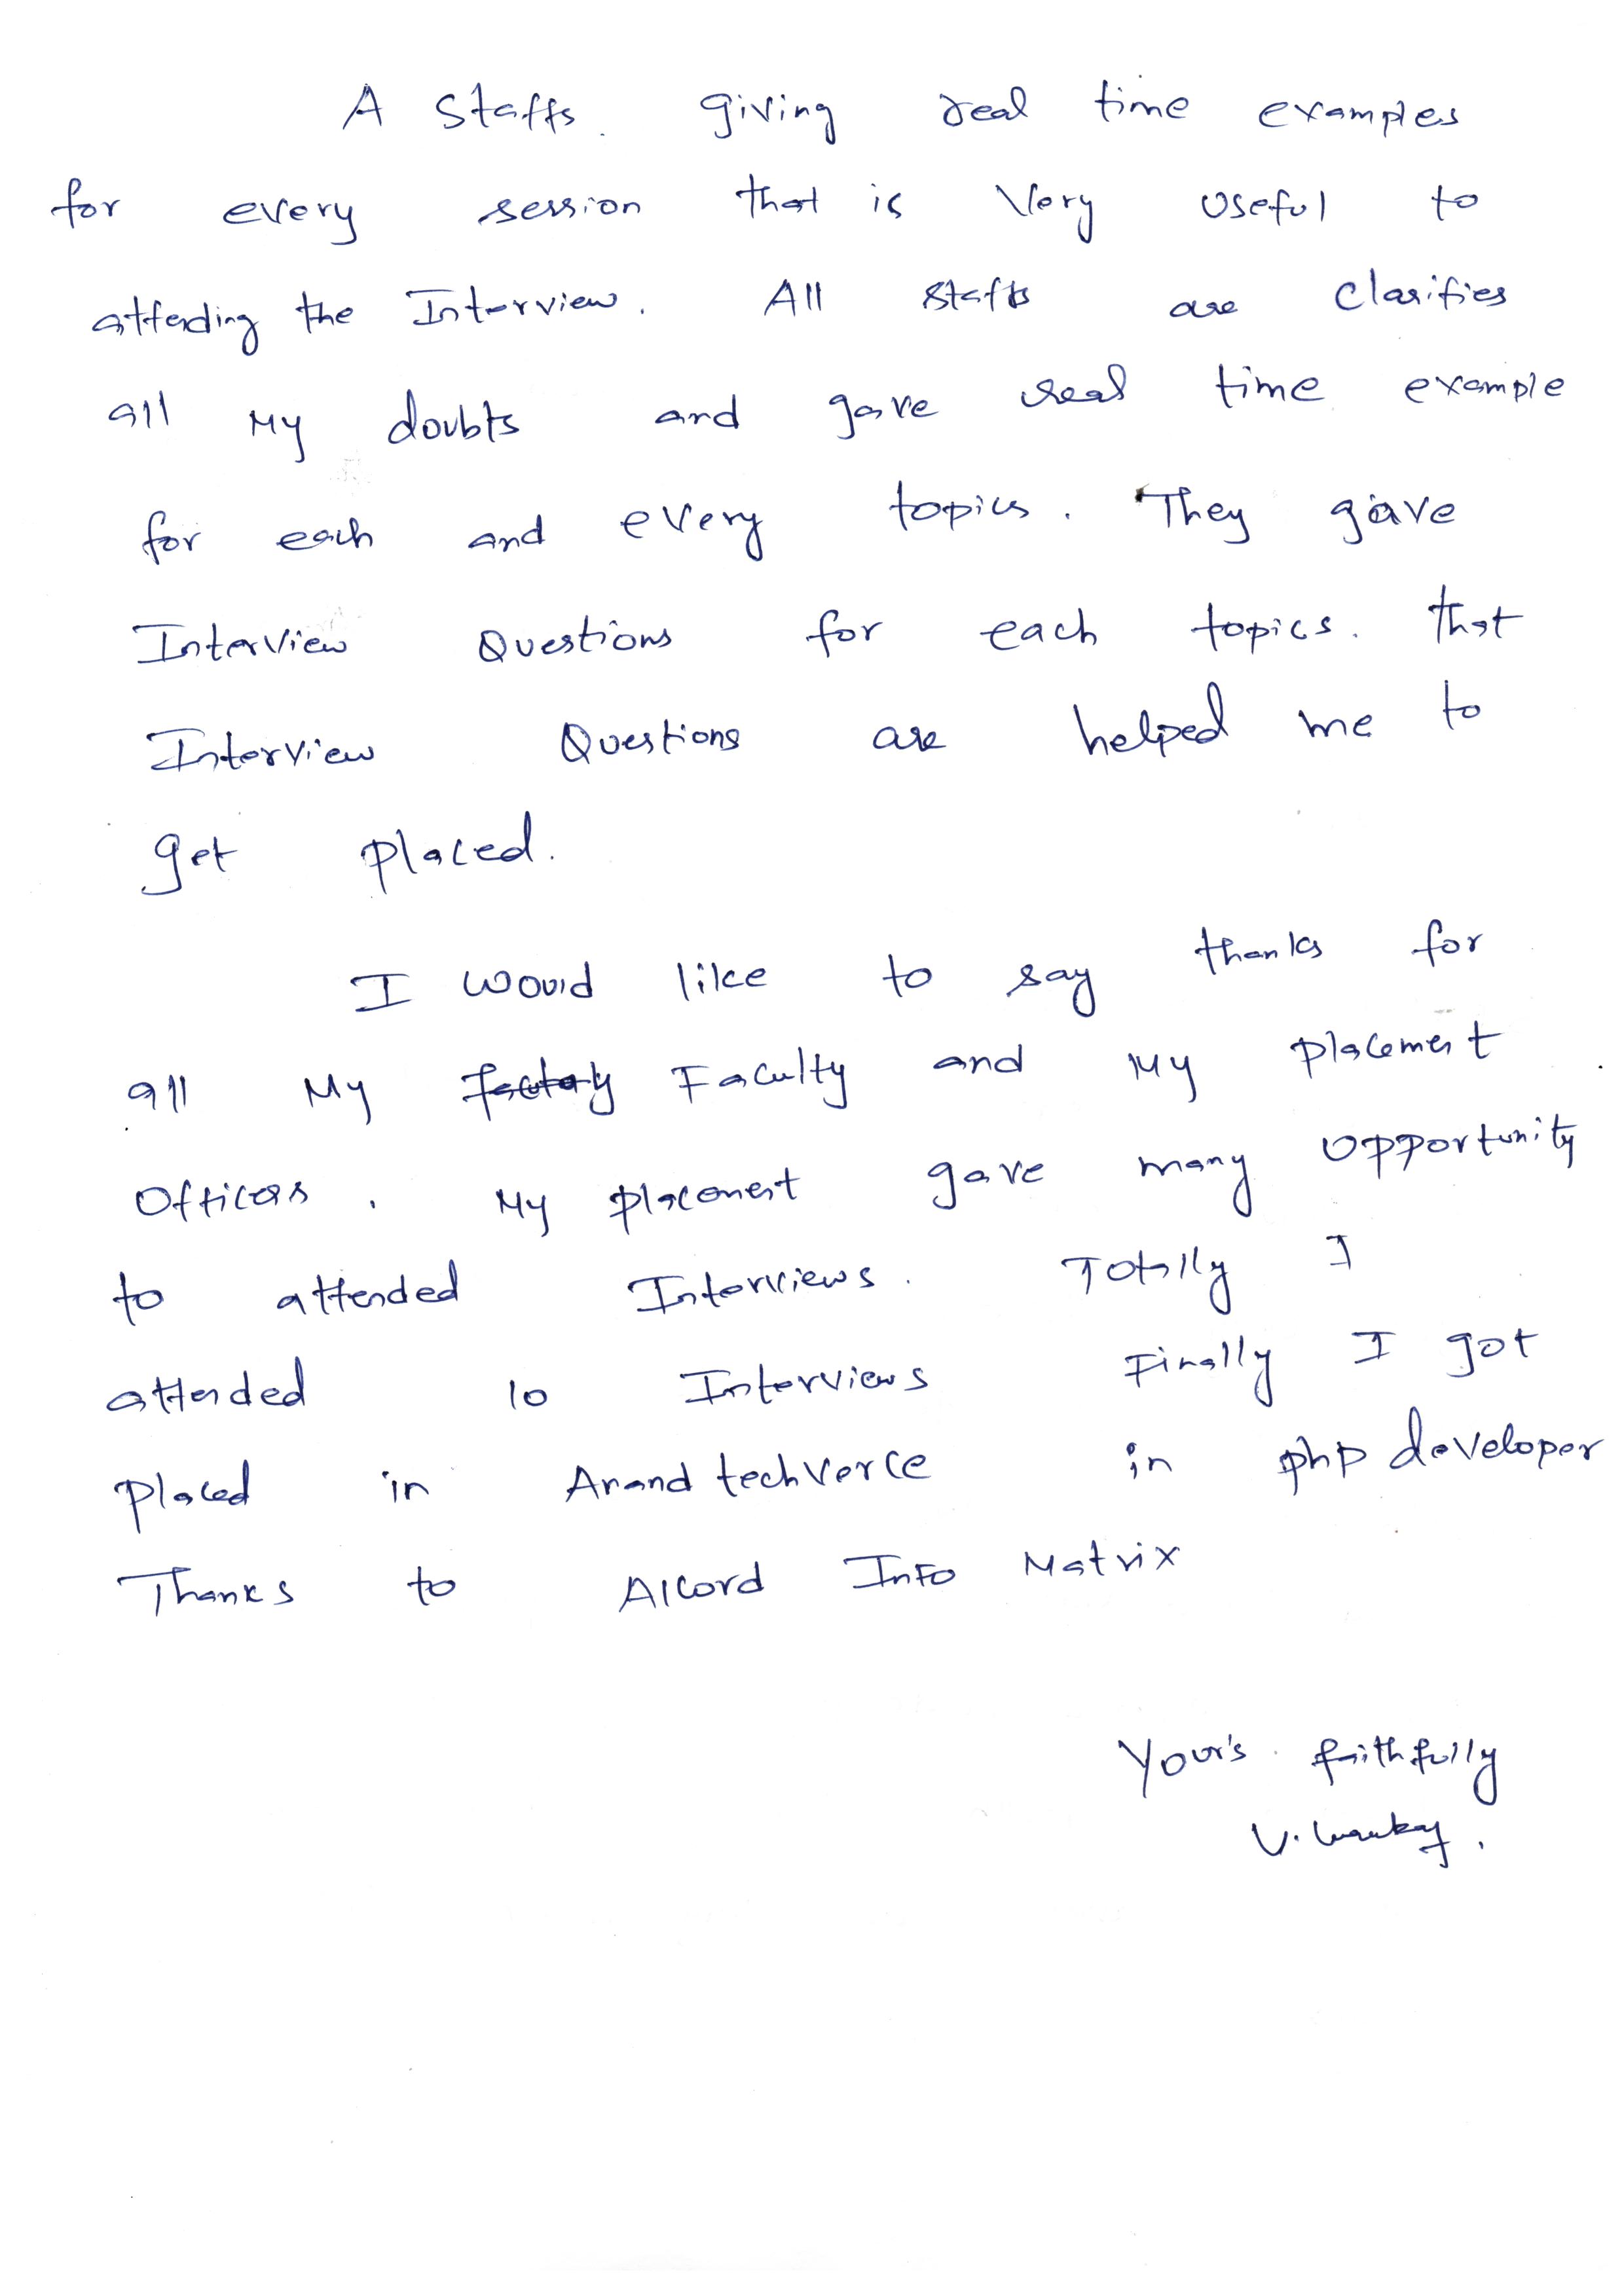 A Staffs. giving real time examples
for every session that is Very useful to
attending the Interview. All staffs are clarifies
all My doubts and gave real time example
for each and every topics. They gave
Interview Questions for each topics. That
Interview Questions are helped me to
get placed.
I would like to say thanks for
all My Faculty and My placement
Officers. My placement gave many Opportunity
to attended Interviews. Totally I
attended 10 Interviews Finally I got
placed in Anand techVerce in php developer
Thanks to Alcord Info Matrix
Your's faithfully
V.